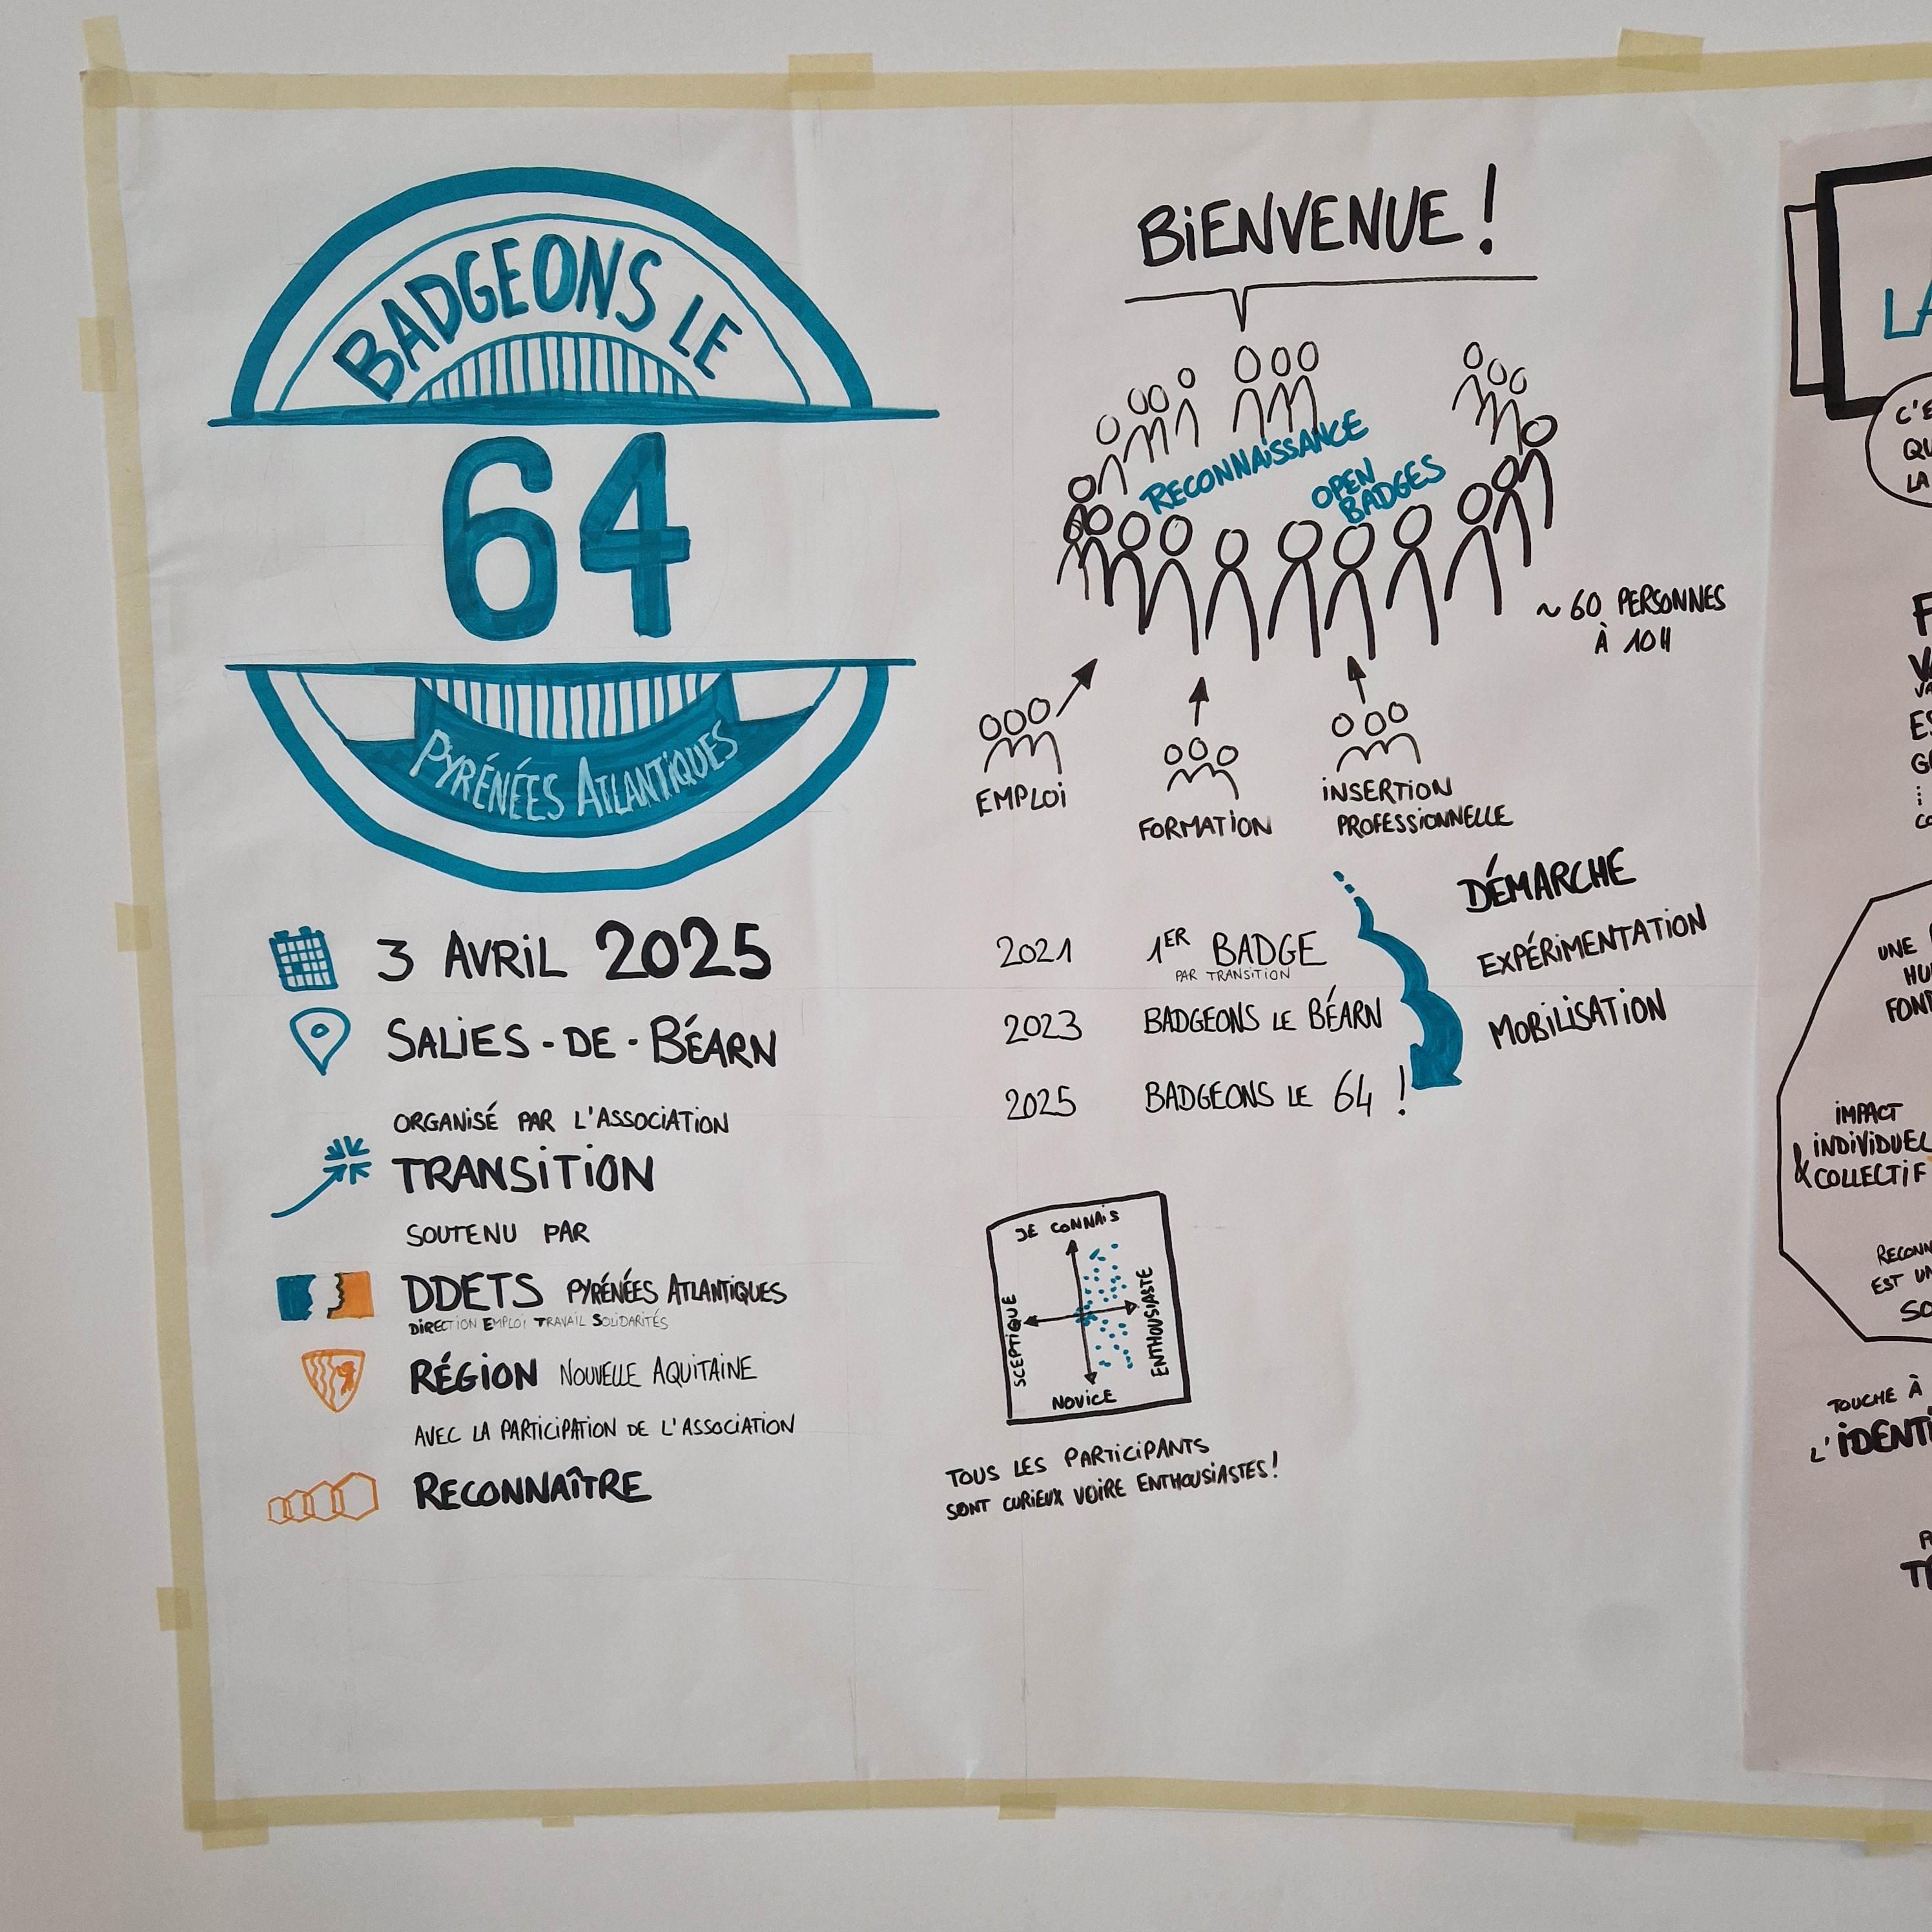 BADGEONS LE
64
PYRÉNÉES ATLANTIQUES
3 AVRIL 2025
SALIES-DE-BÉARN
ORGANISÉ PAR L'ASSOCIATION
TRANSITION
SOUTENU PAR
DDETS PYRÉNÉES ATLANTIQUES
DIRECTION EMPLOI TRAVAIL SOLIDARITÉS
RÉGION NOUVELLE AQUITAINE
AVEC LA PARTICIPATION DE L'ASSOCIATION
RECONNAÎTRE
BIENVENUE !
RECONNAISSANCE
OPEN
BADGES
~ 60 PERSONNES
À 10H
EMPLOI
FORMATION
INSERTION
PROFESSIONNELLE
2021 1ER BADGE
PAR TRANSITION
2023 BADGEONS LE BÉARN
2025 BADGEONS LE 64 !
DÉMARCHE
EXPÉRIMENTATION
MOBILISATION
JE CONNAIS
SCEPTIQUE
ENTHOUSIASTE
NOVICE
TOUS LES PARTICIPANTS
SONT CURIEUX VOIRE ENTHOUSIASTES !
LA
QU
LA
UNE
IMPACT
INDIVIDUEL
& COLLECTIF
EST UN
TOUCHE À